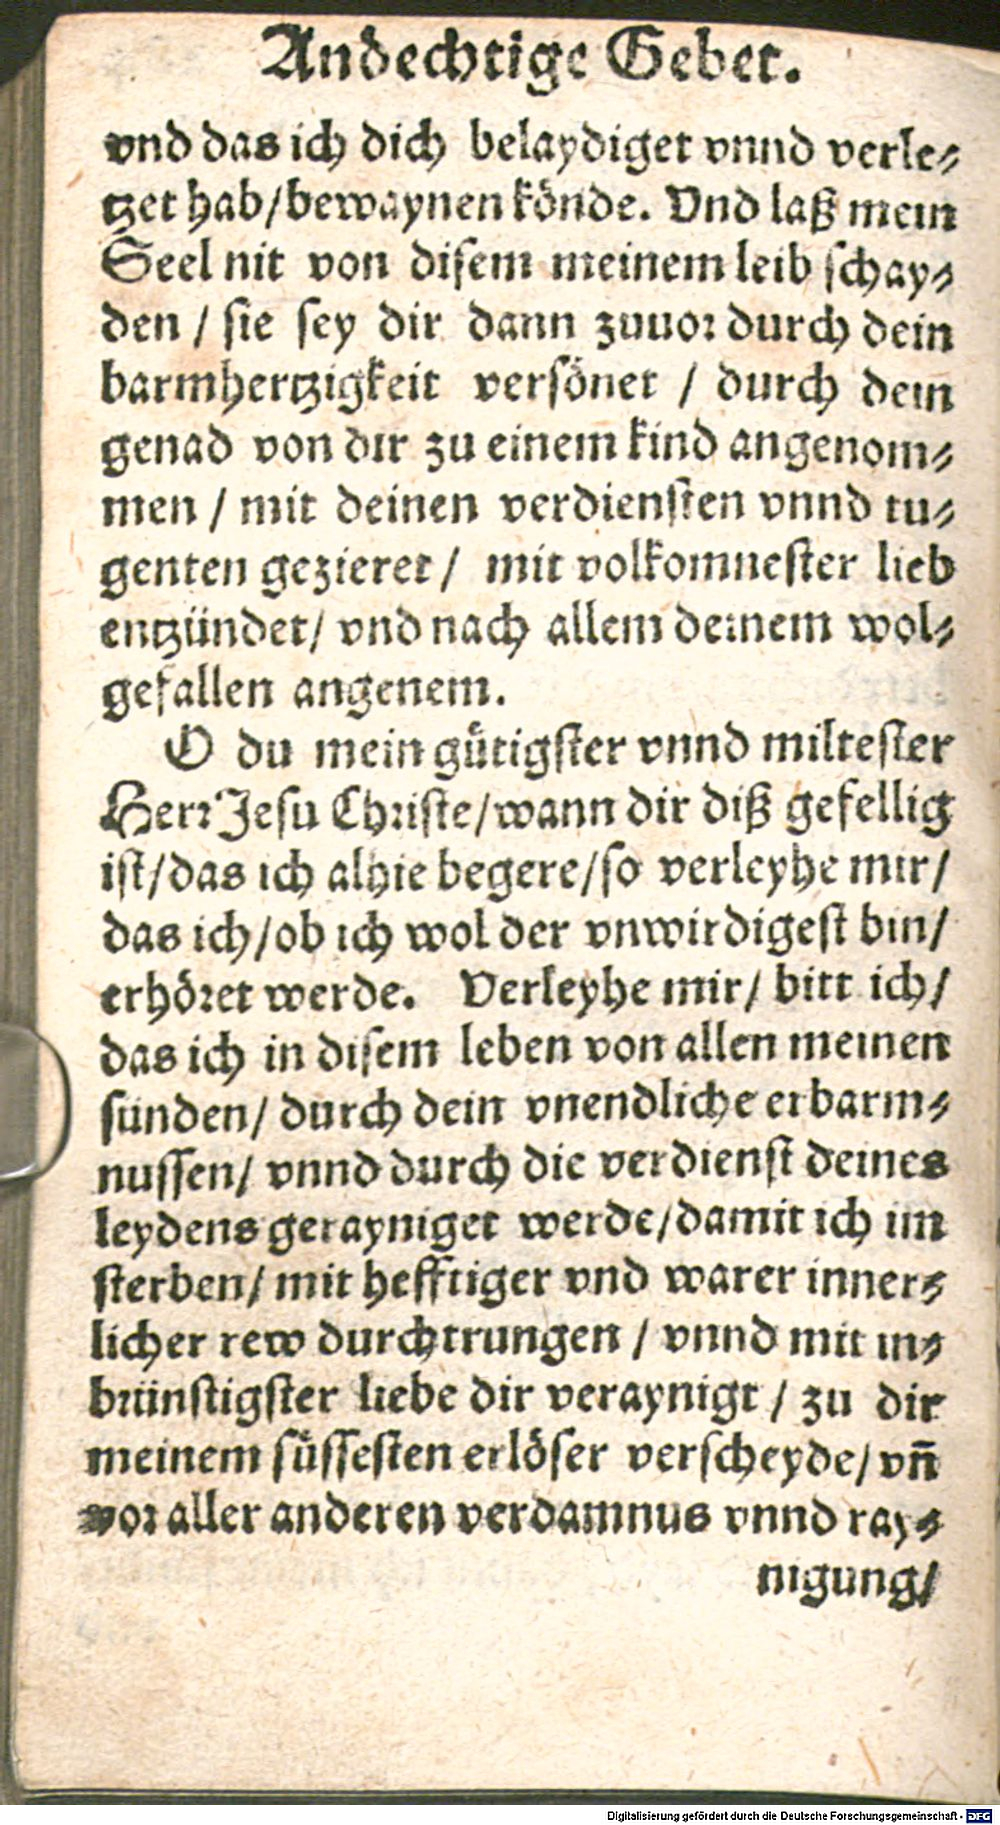 Andechtige Gebet.
vnd das ich dich belaydiget vnnd verle⸗
tzet hab/bewaynen könde. Vnd laß mein
Seel nit von disem meinem leib schay⸗
den / sie sey dir dann zuuor durch dein
barmhertzigkeit versönet / durch dein
genad von dir zu einem kind angenom⸗
men / mit deinen verdiensten vnnd tu⸗
genten gezieret / mit volkomnester lieb
entzündet/ vnd nach allem deinem wol⸗
gefallen angenem.
O du mein gütigster vnnd miltester
Herr Jesu Christe/wann dir diß gefellig
ist/das ich alhie begere/so verleyhe mir/
das ich/ob ich wol der vnwirdigest bin/
erhöret werde. Verleyhe mir/ bitt ich/
das ich in disem leben von allen meinen
sünden/ durch dein vnendliche erbarm⸗
nussen/ vnnd durch die verdienst deines
leydens gerayniget werde/damit ich im
sterben/ mit hefftiger vnd warer inner⸗
licher rew durchtrungen / vnnd mit in⸗
brünstigster liebe dir veraynigt / zu dir
meinem süssesten erlöser verscheyde/ vn̄
vor aller anderen verdamnus vnnd ray⸗
nigung/
Digitalisierung gefördert durch die Deutsche Forschungsgemeinschaft - DFG